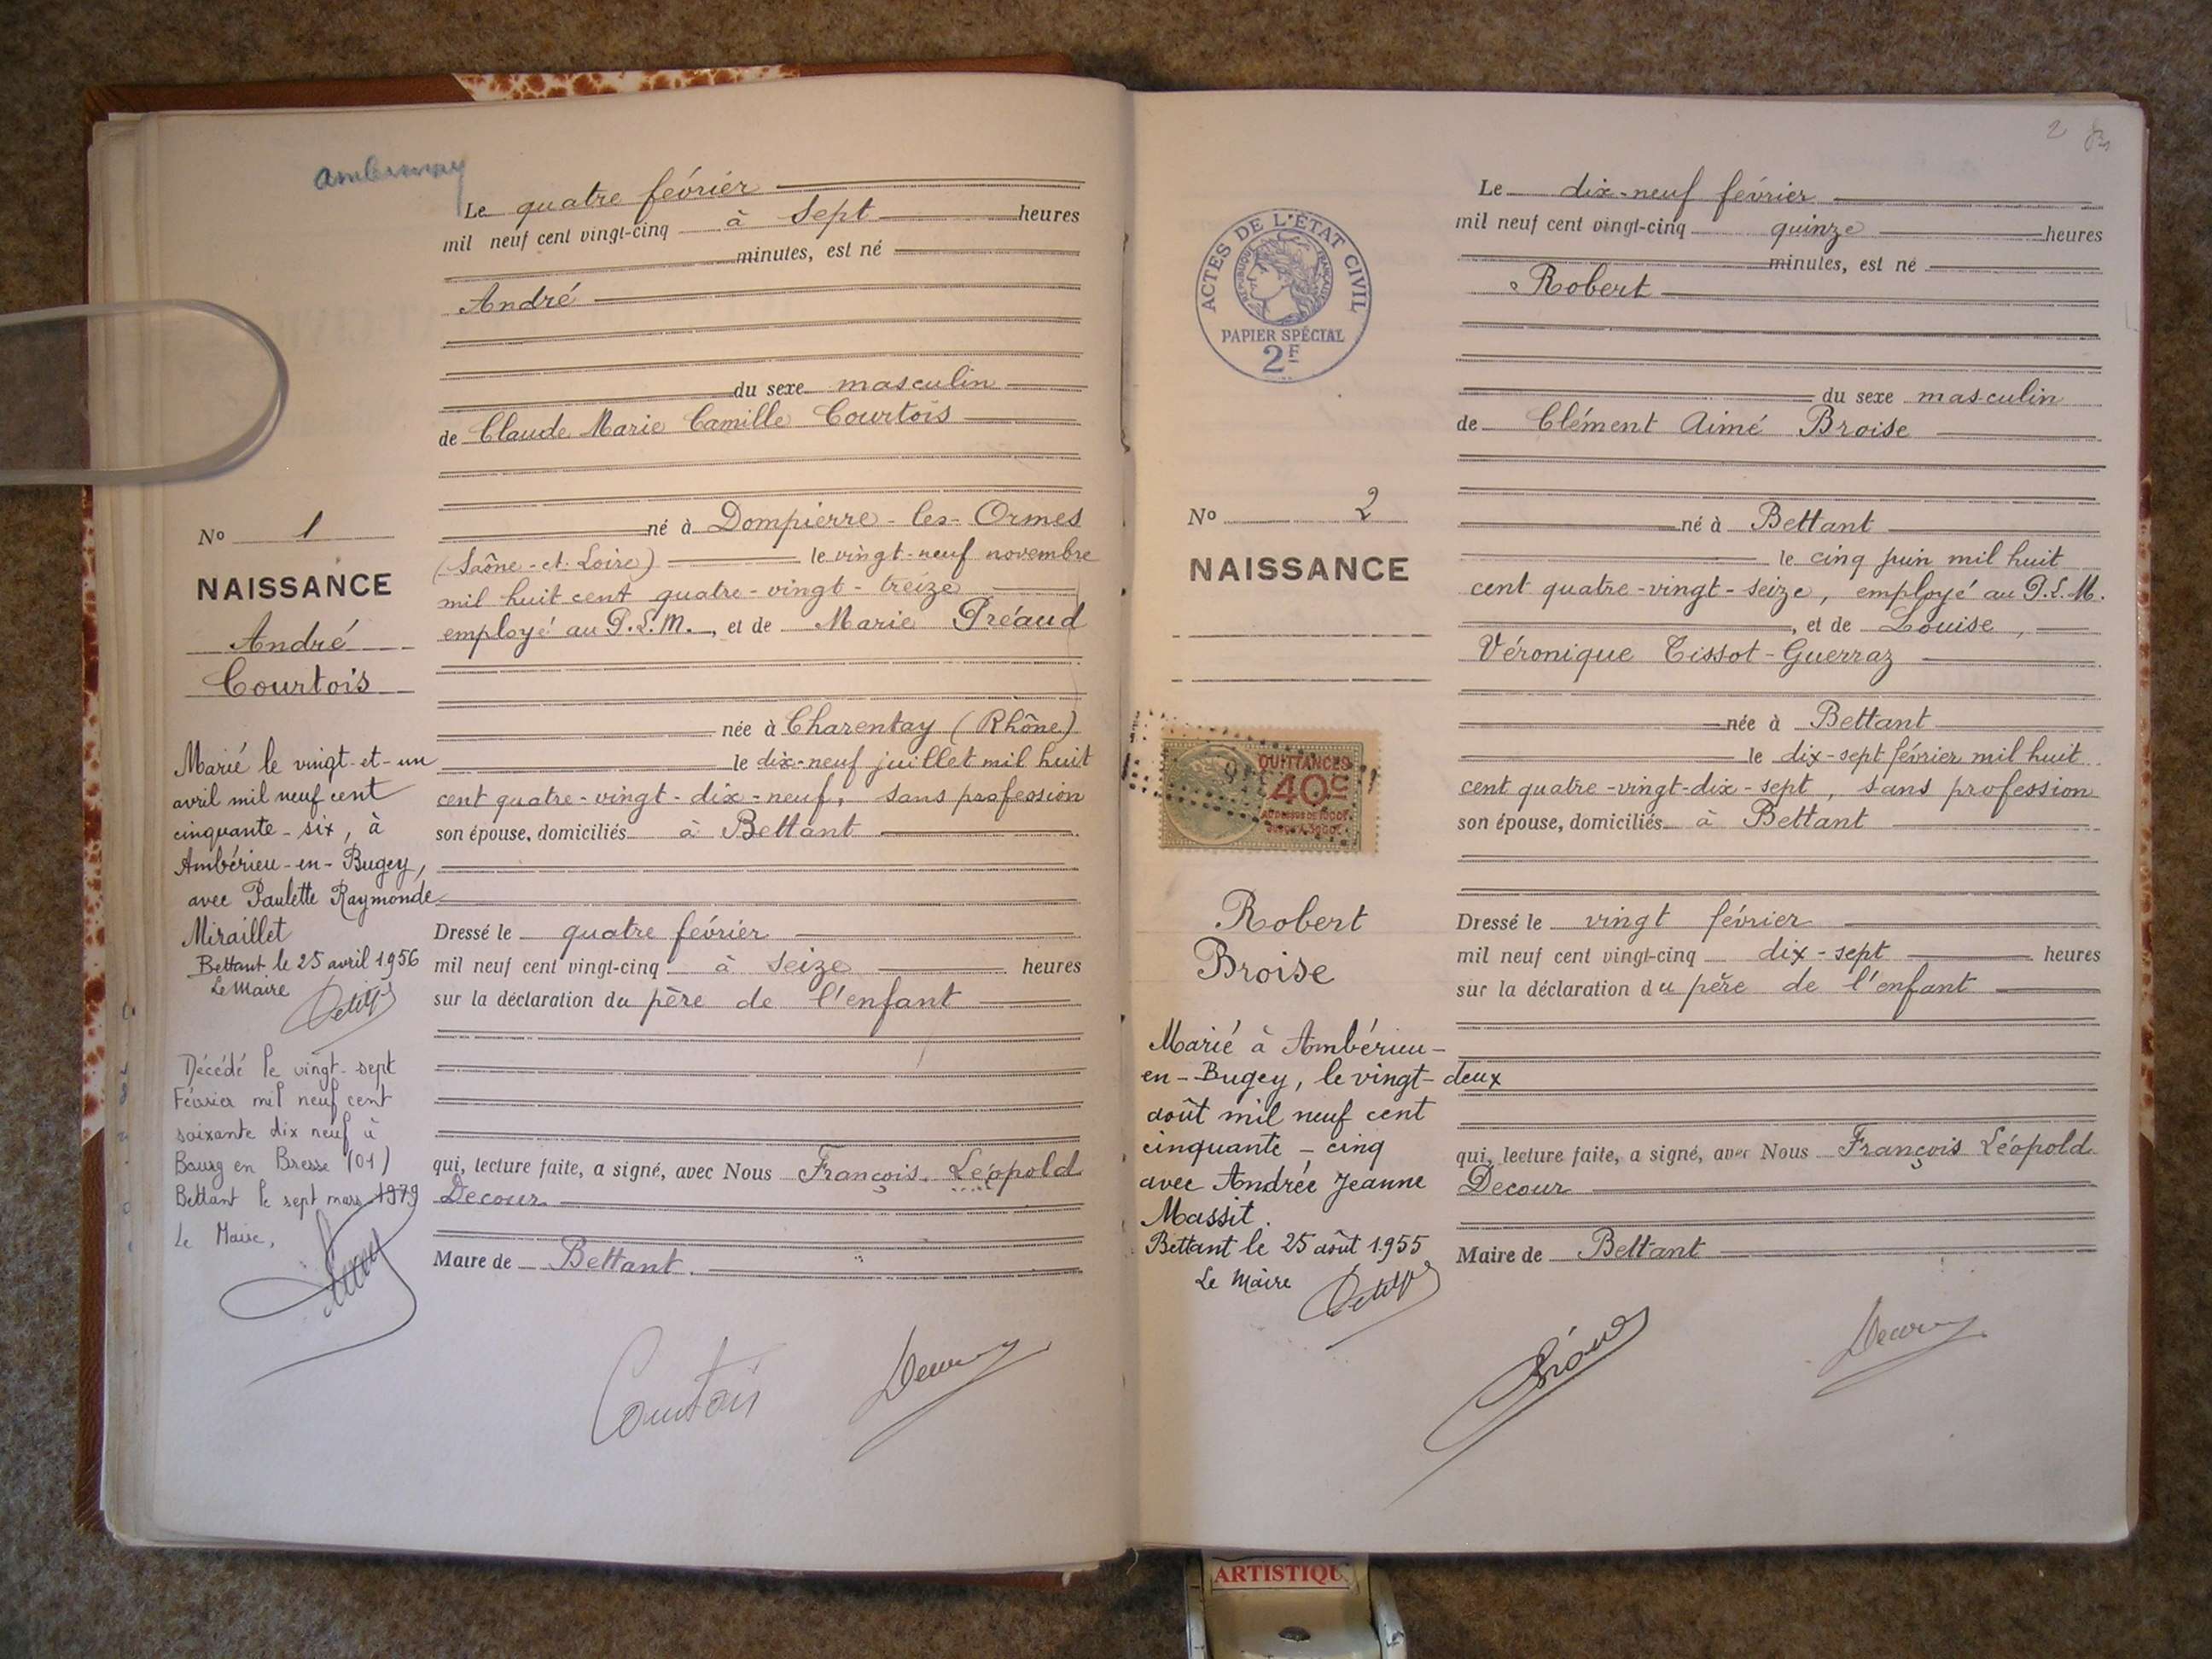 Le quatre février
mil neuf cent vingt-cinq à sept heures
minutes, est né
André
du sexe masculin
de Claude Marie Camille Courtois
né à Dompierre-les-Ormes
(Saône-et-Loire) le vingt-neuf novembre
mil huit cent quatre-vingt-treize
employé au P.L.M., et de Marie Préaud
née à Charentay (Rhône)
le dix-neuf juillet mil huit
cent quatre-vingt-dix-neuf, sans profession
son épouse, domiciliés à Bettant
Dressé le quatre février
mil neuf cent vingt-cinq à seize heures
sur la déclaration du père de l'enfant
qui, lecture faite, a signé, avec Nous François Léopold
Decour
Maire de Bettant
No 1
NAISSANCE
André
Courtois
Marié le vingt-et-un
avril mil neuf cent
cinquante-six, à
Ambérieu-en-Bugey,
avec Paulette Raymonde
Miraillet
Bettant le 25 avril 1956
Le Maire
Décédé le vingt-sept
Février mil neuf cent
soixante dix neuf à
Bourg en Bresse (01)
Bettant le sept mars 1979
Le Maire,
Courtois
Decour
2
Le dix-neuf février
mil neuf cent vingt-cinq quinze heures
minutes, est né
Robert
du sexe masculin
de Clément Aimé Broise
né à Bettant
le cinq juin mil huit
cent quatre-vingt-seize, employé au P.L.M.
, et de Louise,
Véronique Tissot-Guerraz
née à Bettant
le dix-sept février mil huit
cent quatre-vingt-dix-sept, sans profession
son épouse, domiciliés à Bettant
Dressé le vingt février
mil neuf cent vingt-cinq dix-sept heures
sur la déclaration du père de l'enfant
qui, lecture faite, a signé, avec Nous François Léopold
Decour
Maire de Bettant
ACTES DE L'ÉTAT CIVIL
RÉPUBLIQUE FRANÇAISE
PAPIER SPÉCIAL
2F
No 2
NAISSANCE
QUITTANCES
40c
Robert
Broise
Marié à Ambérieu-
en-Bugey, le vingt-deux
août mil neuf cent
cinquante-cinq
avec Andrée Jeanne
Massit.
Bettant le 25 août 1955
Le Maire
Broise
Decour
ARTISTIQU